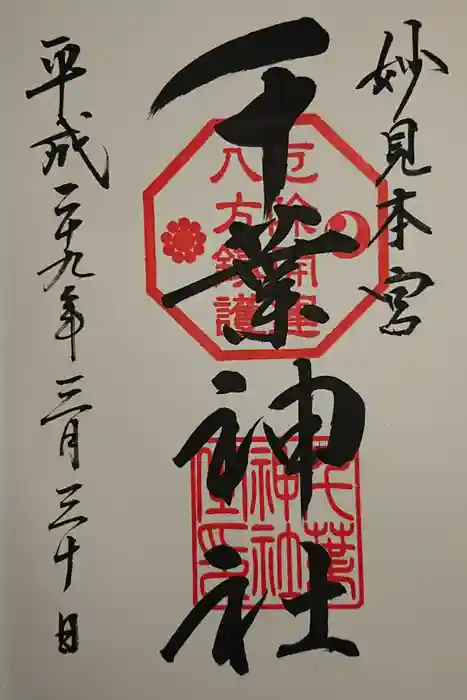 妙見本宮
千葉神社
平成二十九年三月三十日
厄除開運
八方鎮護
千葉
神社